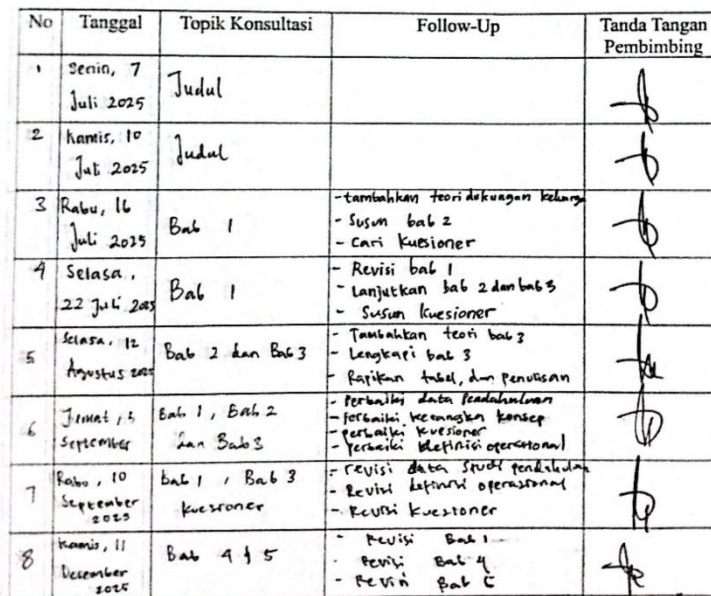 No Tanggal Topik Konsultasi Follow-Up Tanda Tangan
Pembimbing
1 Senin, 7
Juli 2025
Judul
2 Kamis, 10
Juli 2025
Judul
3 Rabu, 16
Juli 2025
Bab 1
- tambahkan teori dukungan keluarga
- Susun bab 2
- Cari Kuesioner
4 Selasa,
22 Juli 2025
Bab 1
- Revisi bab 1
- Lanjutkan bab 2 dan bab 3
- Susun Kuesioner
5 Selasa, 12
Agustus 2025
Bab 2 dan Bab 3
- Tambahkan teori bab 3
- Lengkapi bab 3
- Rapikan tabel, dan penulisan
6 Jumat, 5
September
Bab 1, Bab 2
dan Bab 3
- Perbaiki data Pendahuluan
- Perbaiki kerangka konsep
- perbaiki kuesioner
- Perbaiki definisi operational
7 Rabu, 10
September
2025
bab 1, Bab 3
kuesioner
- revisi data studi pendahulan
- Revisi definisi operasional
- Revisi Kuesioner
8 Kamis, 11
Desember
2025
Bab 4 & 5
- Revisi Bab 1
- Revisi Bab 4
- Revisi Bab 5